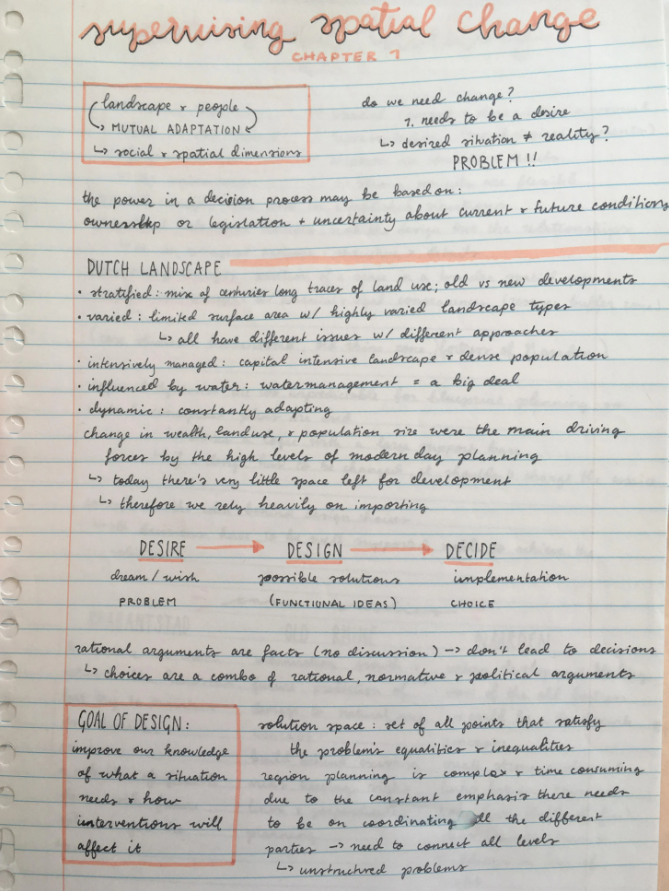 supervising spatial change
CHAPTER 1
landscape & people
↳ MUTUAL ADAPTATION ↲
↳ social & spatial dimensions
do we need change?
1. needs to be a desire
↳ desired situation ≠ reality?
PROBLEM !!
the power in a decision process may be based on:
ownership or legislation + uncertainty about current & future conditions
DUTCH LANDSCAPE
• stratified: mix of centuries long traces of land use; old vs new developments
• varied: limited surface area w/ highly varied landscape types
↳ all have different issues w/ different approaches
• intensively managed: capital intensive landscape & dense population
• influenced by water: watermanagement = a big deal
• dynamic: constantly adapting
change in wealth, landuse, & population size were the main driving
forces by the high levels of modern day planning
↳ today there's very little space left for development
↳ therefore we rely heavily on importing
DESIRE → DESIGN → DECIDE
dream / wish possible solutions implementation
PROBLEM (FUNCTIONAL IDEAS) CHOICE
rational arguments are facts (no discussion) → don't lead to decisions
↳ choices are a combo of rational, normative & political arguments
GOAL OF DESIGN:
improve our knowledge
of what a situation
needs & how
interventions will
affect it
solution space: set of all points that satisfy
the problem's equalities & inequalities
region planning is complex & time consuming
due to the constant emphasis there needs
to be on coordinating all the different
parties → need to connect all levels
↳ unstructured problems